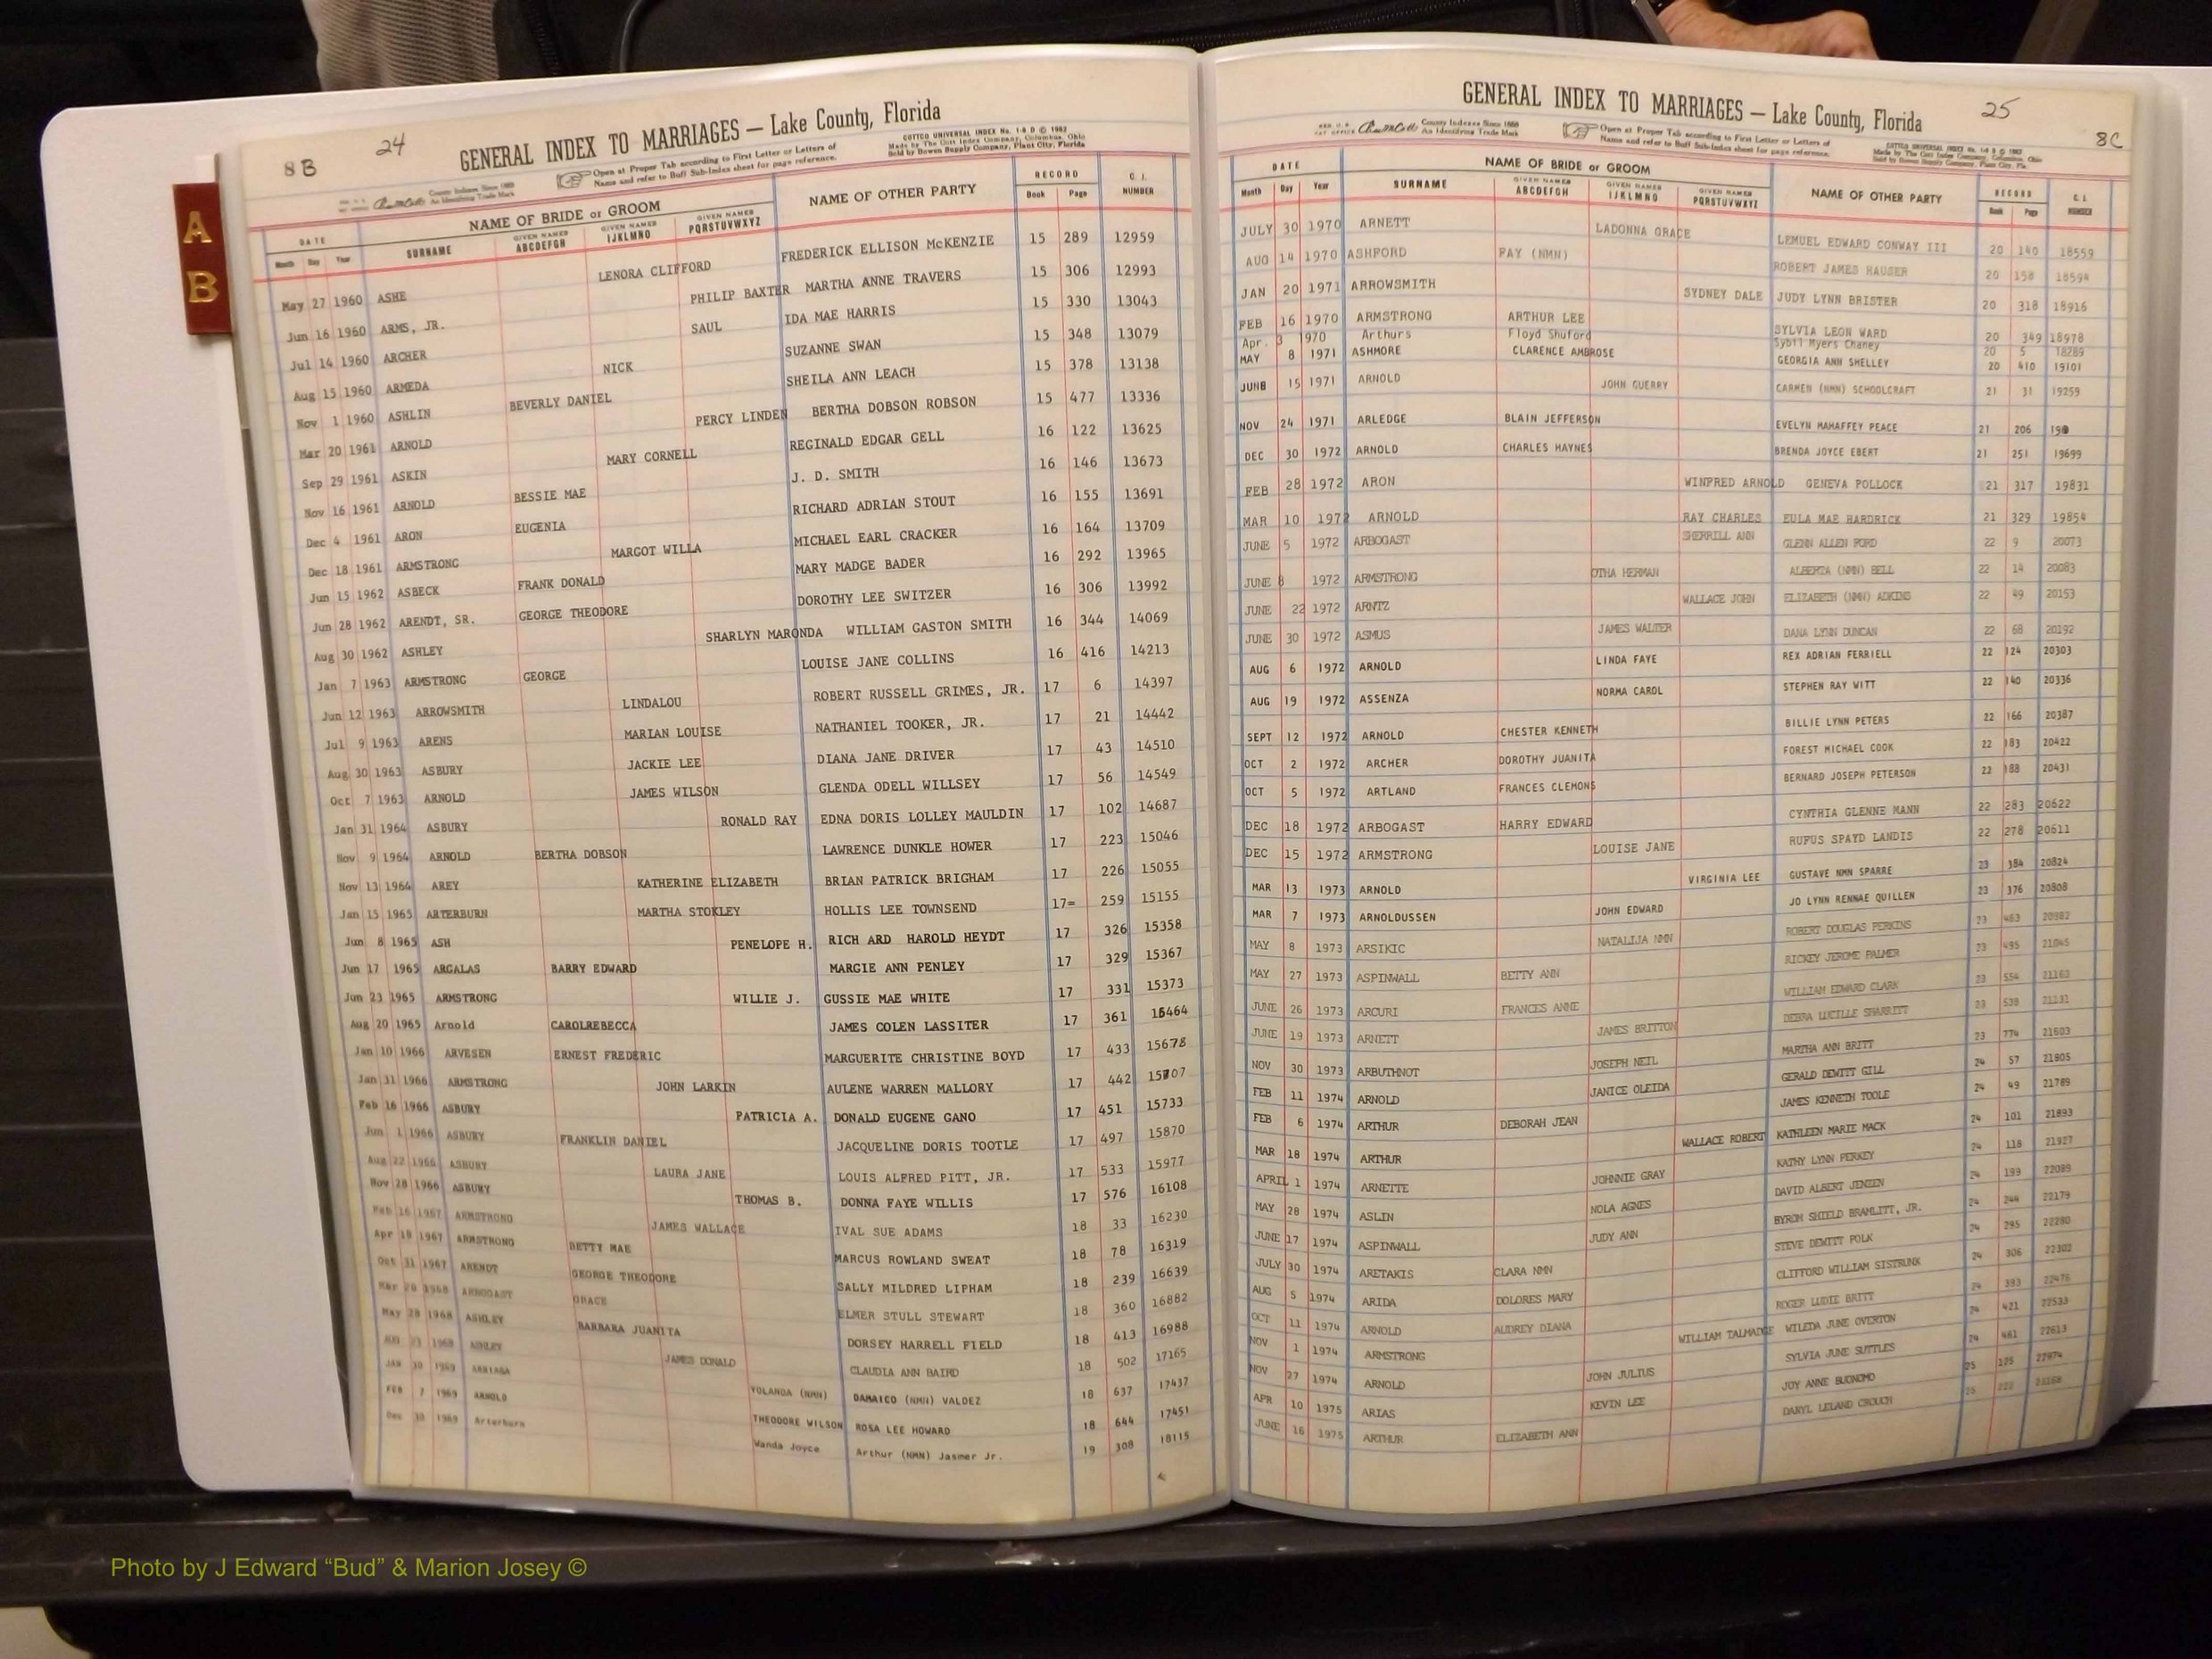 A
B
8B
24
GENERAL INDEX TO MARRIAGES — Lake County, Florida
Open at Proper Tab according to First Letter or Letters of
Name and refer to Buff Sub-Index sheet for page reference.
COTTCO UNIVERSAL INDEX No. 1-8 D © 1962
Made by The Cott Index Company, Columbus, Ohio
Sold by Bowen Supply Company, Plant City, Florida
County Indexes Since 1888
An Identifying Trade Mark
DATE NAME OF BRIDE or GROOM NAME OF OTHER PARTY RECORD C. I. NUMBER
Month Day Year SURNAME GIVEN NAMES ABCDEFGH GIVEN NAMES IJKLMNO GIVEN NAMES PQRSTUVWXYZ Book Page
May 27 1960 ASHE LENORA CLIFFORD FREDERICK ELLISON McKENZIE 15 289 12959
Jun 16 1960 ARMS, JR. PHILIP BAXTER MARTHA ANNE TRAVERS 15 306 12993
Jul 14 1960 ARCHER SAUL IDA MAE HARRIS 15 330 13043
Aug 15 1960 ARMEDA NICK SUZANNE SWAN 15 348 13079
Nov 1 1960 ASHLIN BEVERLY DANIEL SHEILA ANN LEACH 15 378 13138
Mar 20 1961 ARNOLD PERCY LINDEN BERTHA DOBSON ROBSON 15 477 13336
Sep 29 1961 ASKIN MARY CORNELL REGINALD EDGAR GELL 16 122 13625
Nov 16 1961 ARNOLD BESSIE MAE J. D. SMITH 16 146 13673
Dec 4 1961 ARON EUGENIA RICHARD ADRIAN STOUT 16 155 13691
Dec 18 1961 ARMSTRONG MARGOT WILLA MICHAEL EARL CRACKER 16 164 13709
Jun 15 1962 ASBECK FRANK DONALD MARY MADGE BADER 16 292 13965
Jun 28 1962 ARENDT, SR. GEORGE THEODORE DOROTHY LEE SWITZER 16 306 13992
Aug 30 1962 ASHLEY SHARLYN MARONDA WILLIAM GASTON SMITH 16 344 14069
Jan 7 1963 ARMSTRONG GEORGE LOUISE JANE COLLINS 16 416 14213
Jun 12 1963 ARROWSMITH LINDALOU ROBERT RUSSELL GRIMES, JR. 17 6 14397
Jul 9 1963 ARENS MARIAN LOUISE NATHANIEL TOOKER, JR. 17 21 14442
Aug 30 1963 ASBURY JACKIE LEE DIANA JANE DRIVER 17 43 14510
Oct 7 1963 ARNOLD JAMES WILSON GLENDA ODELL WILLSEY 17 56 14549
Jan 31 1964 ASBURY RONALD RAY EDNA DORIS LOLLEY MAULDIN 17 102 14687
Nov 9 1964 ARNOLD BERTHA DOBSON LAWRENCE DUNKLE HOWER 17 223 15046
Nov 13 1964 AREY KATHERINE ELIZABETH BRIAN PATRICK BRIGHAM 17 226 15055
Jan 15 1965 ARTERBURN MARTHA STOKLEY HOLLIS LEE TOWNSEND 17= 259 15155
Jun 8 1965 ASH PENELOPE H. RICH ARD HAROLD HEYDT 17 326 15358
Jun 17 1965 ARGALAS BARRY EDWARD MARGIE ANN PENLEY 17 329 15367
Jun 23 1965 ARMSTRONG WILLIE J. GUSSIE MAE WHITE 17 331 15373
Aug 20 1965 Arnold CAROLREBECCA JAMES COLEN LASSITER 17 361 15464
Jan 10 1966 ARVESEN ERNEST FREDERIC MARGUERITE CHRISTINE BOYD 17 433 15678
Jan 31 1966 ARMSTRONG JOHN LARKIN AULENE WARREN MALLORY 17 442 15707
Feb 16 1966 ASBURY PATRICIA A. DONALD EUGENE GANO 17 451 15733
Jun 1 1966 ASBURY FRANKLIN DANIEL JACQUELINE DORIS TOOTLE 17 497 15870
Aug 22 1966 ASBURY LAURA JANE LOUIS ALFRED PITT, JR. 17 533 15977
Nov 28 1966 ASBURY THOMAS B. DONNA FAYE WILLIS 17 576 16108
Feb 16 1967 ARMSTRONG JAMES WALLACE IVAL SUE ADAMS 18 33 16230
Apr 18 1967 ARMSTRONG BETTY MAE MARCUS ROWLAND SWEAT 18 78 16319
Oct 31 1967 ARENDT GEORGE THEODORE SALLY MILDRED LIPHAM 18 239 16639
Mar 29 1968 ARBOGAST GRACE ELMER STULL STEWART 18 360 16882
May 28 1968 ASHLEY BARBARA JUANITA DORSEY HARRELL FIELD 18 413 16988
1968 ASHLEY JAMES DONALD CLAUDIA ANN BAIRD 18 502 17165
JAN 30 1969 ARRIAGA YOLANDA (NMN) DAMAICO (NMN) VALDEZ 18 637 17437
FEB 7 1969 ARNOLD THEODORE WILSON ROSA LEE HOWARD 18 644 17451
Dec 30 1969 Arterburn Wanda Joyce Arthur (NMN) Jasmer Jr. 19 308 18115
25
8C
GENERAL INDEX TO MARRIAGES — Lake County, Florida
County Indexes Since 1888
An Identifying Trade Mark
Open at Proper Tab according to First Letter or Letters of
Name and refer to Buff Sub-Index sheet for page reference.
DATE NAME OF BRIDE or GROOM NAME OF OTHER PARTY RECORD C. I. NUMBER
Month Day Year SURNAME GIVEN NAMES ABCDEFGH GIVEN NAMES IJKLMNO GIVEN NAMES PQRSTUVWXYZ Book Page
JULY 30 1970 ARNETT LADONNA GRACE LEMUEL EDWARD CONWAY III 20 140 18559
AUG 14 1970 ASHFORD FAY (NMN) ROBERT JAMES HAUSER 20 158 18594
JAN 20 1971 ARROWSMITH SYDNEY DALE JUDY LYNN BRISTER 20 318 18916
FEB 16 1970 ARMSTRONG ARTHUR LEE SYLVIA LEON WARD 20 349 18978
Apr. 3 1970 Arthurs Floyd Shuford Sybil Myers Chaney 20 5 18289
MAY 8 1971 ASHMORE CLARENCE AMBROSE GEORGIA ANN SHELLEY 20 410 19101
JUNE 15 1971 ARNOLD JOHN GUERRY CARMEN (NMN) SCHOOLCRAFT 21 31 19259
NOV 24 1971 ARLEDGE BLAIN JEFFERSON EVELYN MAHAFFEY PEACE 21 206
DEC 30 1972 ARNOLD CHARLES HAYNES BRENDA JOYCE EBERT 21 251 19699
FEB 28 1972 ARON WINFRED ARNOLD GENEVA POLLOCK 21 317 19831
MAR 10 1972 ARNOLD RAY CHARLES EULA MAE HARDRICK 21 329 19854
JUNE 5 1972 ARBOGAST SHERRILL ANN GLENN ALLEN FORD 22 9 20073
JUNE 8 1972 ARMSTRONG OTHA HERMAN ALBERTA (NMN) BELL 22 14 20083
JUNE 22 1972 ARNTZ WALLACE JOHN ELIZABETH (NMN) ADKINS 22 49 20153
JUNE 30 1972 ASMUS JAMES WALTER DANA LYNN DUNCAN 22 68 20192
AUG 6 1972 ARNOLD LINDA FAYE REX ADRIAN FERRIELL 22 124 20303
AUG 19 1972 ASSENZA NORMA CAROL STEPHEN RAY WITT 22 140 20336
SEPT 12 1972 ARNOLD CHESTER KENNETH BILLIE LYNN PETERS 22 166 20387
OCT 2 1972 ARCHER DOROTHY JUANITA FOREST MICHAEL COOK 22 183 20422
OCT 5 1972 ARTLAND FRANCES CLEMONS BERNARD JOSEPH PETERSON 22 188 20431
DEC 18 1972 ARBOGAST HARRY EDWARD CYNTHIA GLENNE MANN 22 283 20622
DEC 15 1972 ARMSTRONG LOUISE JANE RUFUS SPAYD LANDIS 22 278 20611
MAR 13 1973 ARNOLD VIRGINIA LEE GUSTAVE NMN SPARRE 23 384 20824
MAR 7 1973 ARNOLDUSSEN JOHN EDWARD JO LYNN RENNAE QUILLEN 23 376 20808
MAY 8 1973 ARSIKIC NATALIJA NMN ROBERT DOUGLAS PERKINS 23 463 20982
MAY 27 1973 ASPINWALL BETTY ANN RICKEY JEROME PALMER 23 495 21045
JUNE 26 1973 ARCURI FRANCES ANNE WILLIAM EDWARD CLARK 23 554 21163
JUNE 19 1973 ARNETT JAMES BRITTON DEBRA LUCILLE SHARRITT 23 538 21131
NOV 30 1973 ARBUTHNOT JOSEPH NEIL MARTHA ANN BRITT 23 774 21603
FEB 11 1974 ARNOLD JANICE OLEIDA GERALD DEWITT GILL 24 57 21805
FEB 6 1974 ARTHUR DEBORAH JEAN JAMES KENNETH TOOLE 24 49 21789
MAR 18 1974 ARTHUR WALLACE ROBERT KATHLEEN MARIE MACK 24 101 21893
APRIL 1 1974 ARNETTE JOHNNIE GRAY KATHY LYNN PERKEY 24 118 21927
MAY 28 1974 ASLIN NOLA AGNES DAVID ALBERT JENZEN 24 199 22089
JUNE 17 1974 ASPINWALL JUDY ANN BYRON SHIELD BRAMLITT, JR. 24 244 22179
JULY 30 1974 ARETAKIS CLARA NMN STEVE DEWITT POLK 24 295 22280
AUG 5 1974 ARIDA DOLORES MARY CLIFFORD WILLIAM SISTRUNK 24 306 22302
OCT 11 1974 ARNOLD AUDREY DIANA ROGER LUDIE BRITT 24 393 22476
NOV 1 1974 ARMSTRONG WILLIAM TALMADGE WILEDA JUNE OVERTON 24 421 22533
NOV 27 1974 ARNOLD JOHN JULIUS SYLVIA JUNE SUTTLES 24 461 22613
APR 10 1975 ARIAS KEVIN LEE JOY ANNE BUONOMO 25 175 22974
JUNE 16 1975 ARTHUR ELIZABETH ANN DARYL LELAND CROUCH 25 222
Photo by J Edward “Bud” & Marion Josey ©